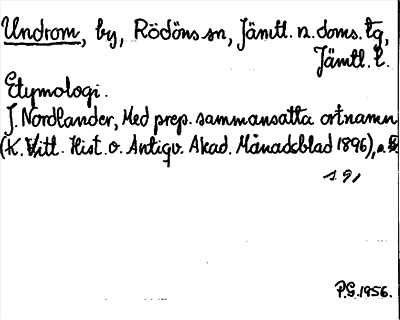 Undrom, by, Rödöns sn, Jämtl. n. doms. tg,
Jämtl. l.
Etymologi.
J. Nordlander, Med prep. sammansatta ortnamn
(K. Vitt. Hist. o. Antiqv. Akad. Månadsblad 1896),
s. 91
P.G. 1956.